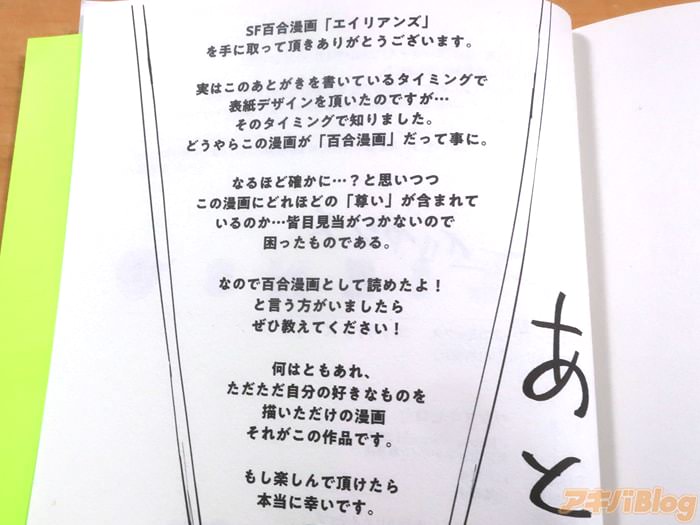 SF百合漫画「エイリアンズ」
を手に取って頂きありがとうございます。
実はこのあとがきを書いているタイミングで
表紙デザインを頂いたのですが…
そのタイミングで知りました。
どうやらこの漫画が「百合漫画」だって事に。
なるほど確かに…？と思いつつ
この漫画にどれほどの「尊い」が含まれて
いるのか…皆目見当がつかないので
困ったものである。
なので百合漫画として読めたよ！
と言う方がいましたら
ぜひ教えてください！
何はともあれ、
ただただ自分の好きなものを
描いただけの漫画
それがこの作品です。
もし楽しんで頂けたら
本当に幸いです。
あと
アキバBlog